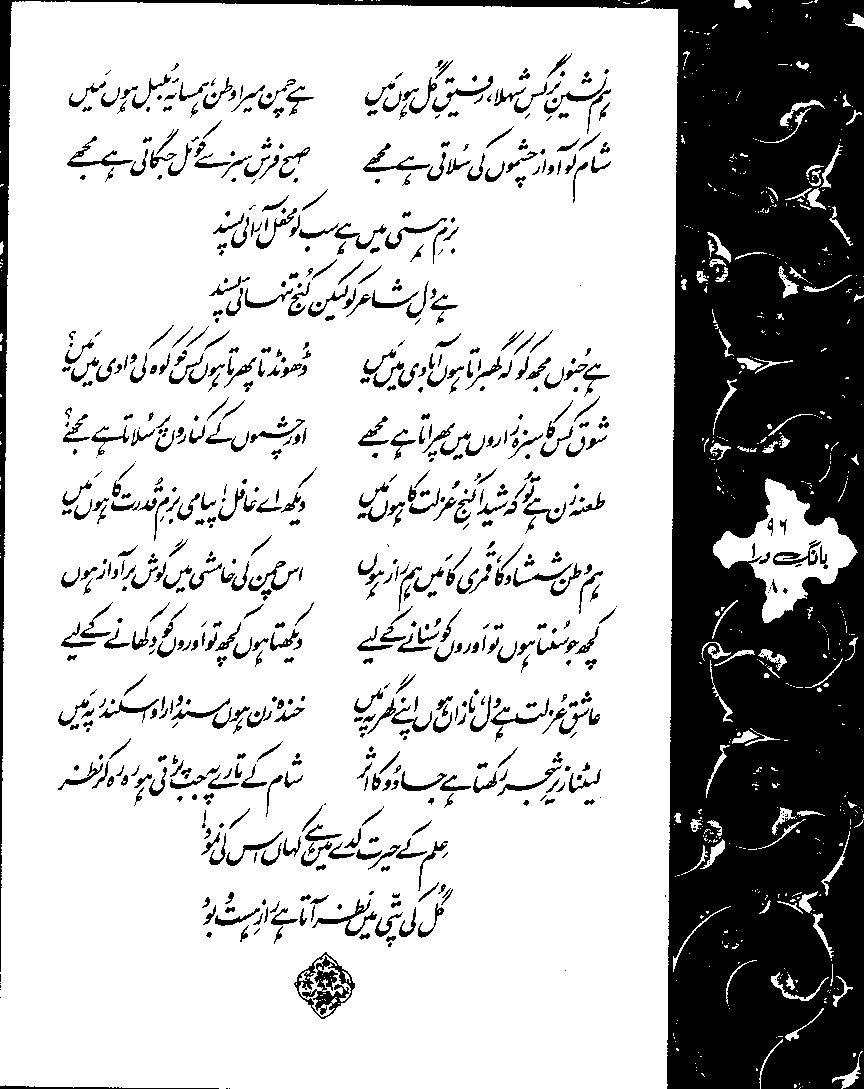 ہم نشینِ نرگسِ شہلا، رفیقِ گُل ہوں مَیں ہے چمن میرا وطن، ہمسایۂ بُلبل ہوں مَیں
شام کو آواز چشموں کی سُلاتی ہے مجھے صبح فرشِ سبز سے کوئل جگاتی ہے مجھے
بزمِ ہستی میں ہے سب کو محفل آرائی پسند
ہے دلِ شاعر کو لیکن کُنجِ تنہائی پسند
ہے جُنوں مجھ کو کہ گھبراتا ہوں آبادی میں مَیں ڈھونڈتا پھرتا ہوں کس کو کوہ کی وادی میں مَیں؟
شوق کس کا سبزہ زاروں میں پھراتا ہے مجھے اور چشموں کے کناروں پر سُلاتا ہے مجھے؟
طعنہ زن ہے تُو کہ شیدا کُنجِ عُزلت کا ہوں مَیں دیکھ اے غافل! پیامی بزمِ قُدرت کا ہوں مَیں
ہم وطن شمشاد کا، قُمری کا مَیں ہم راز ہوں اس چمن کی خامشی میں گوش بر آواز ہوں
کچھ جو سُنتا ہوں تو اَوروں کو سُنانے کے لیے دیکھتا ہوں کچھ تو اَوروں کو دِکھانے کے لیے
عاشقِ عُزلت ہے دل، نازاں ہوں اپنے گھر پہ مَیں خندہ زن ہوں مسندِ دارا و اسکندر پہ مَیں
لیٹنا زیرِ شجر رکھتا ہے جادُو کا اثر شام کے تارے پہ جب پڑتی ہو رہ رہ کر نظر
عِلم کے حیرت کدے میں ہے کہاں اس کی نمود!
گُل کی پتّی میں نظر آتا ہے رازِ ہست و بود
۹۶
بانگِ درا
۸۰